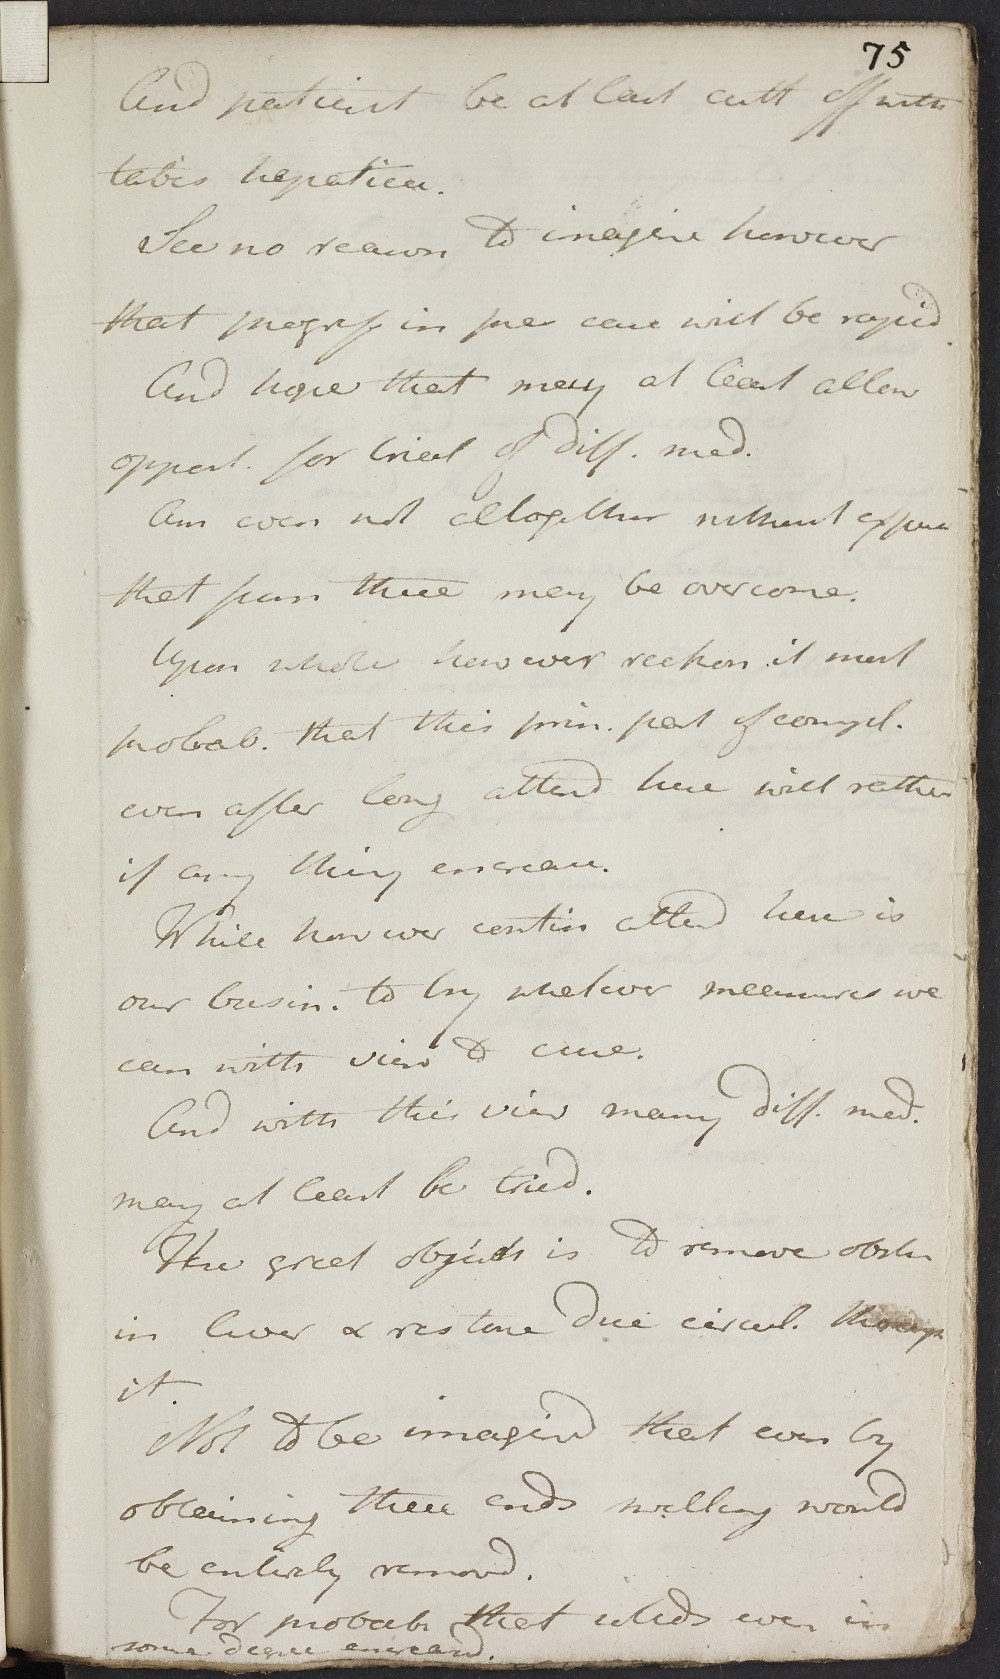 75
And patient be at last cutt off with
tabes hepatica.
See no reason to imagine however
that progress in pres case will be rapid.
And hope that may at least allow
opport. for trial of diff. med.
Am even not altogether without
that from these may be overcome.
Upon whole however reckon it most
probab. that this prin. part of compl.
even after long attend here will rather
if any thing encrease.
While however contin attend here is
our busin. to try whatever measures we
can with view to cure.
And with this view many diff. med.
may at least be tried.
The great objects is to remove obstr
in liver & restore due circul. through
it.
Not to be imagind that even by
obtaining these ends swelling would
be entirely removd.
For probab. that solids even in
some degree encreasd.